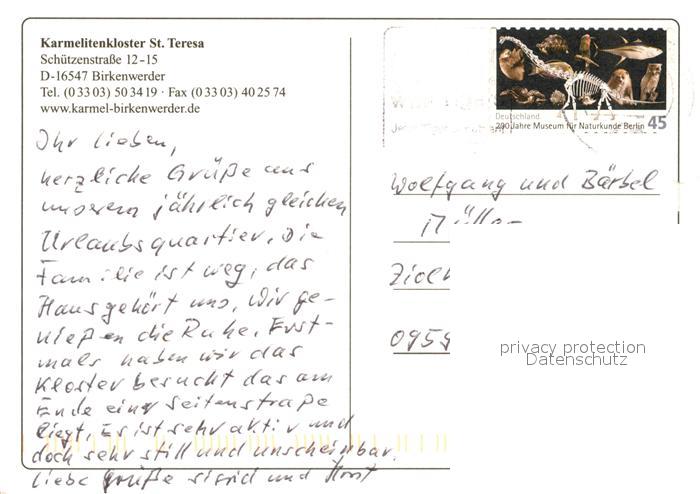 Karmelitenkloster St. Teresa
Schützenstraße 12-15
D-16547 Birkenwerder
Tel. (0 33 03) 50 34 19 · Fax (0 33 03) 40 25 74
www.karmel-birkenwerder.de
Ihr Lieben,
herzliche Grüße aus
unserem jährlich gleichen
Urlaubsquartier. Die
Familie ist weg, das
Haus gehört uns, Wir ge-
nießen die Ruhe. Erst-
mals haben wir das
Kloster besucht das am
Ende einer Seitenstraße
liegt. Es ist sehr aktiv und
doch sehr still und unscheinbar.
Liebe Grüße Sigrid und Horst
Deutschland
200 Jahre Museum für Naturkunde Berlin 45
Wolfgang und Bärbel
0959
privacy protection
Datenschutz